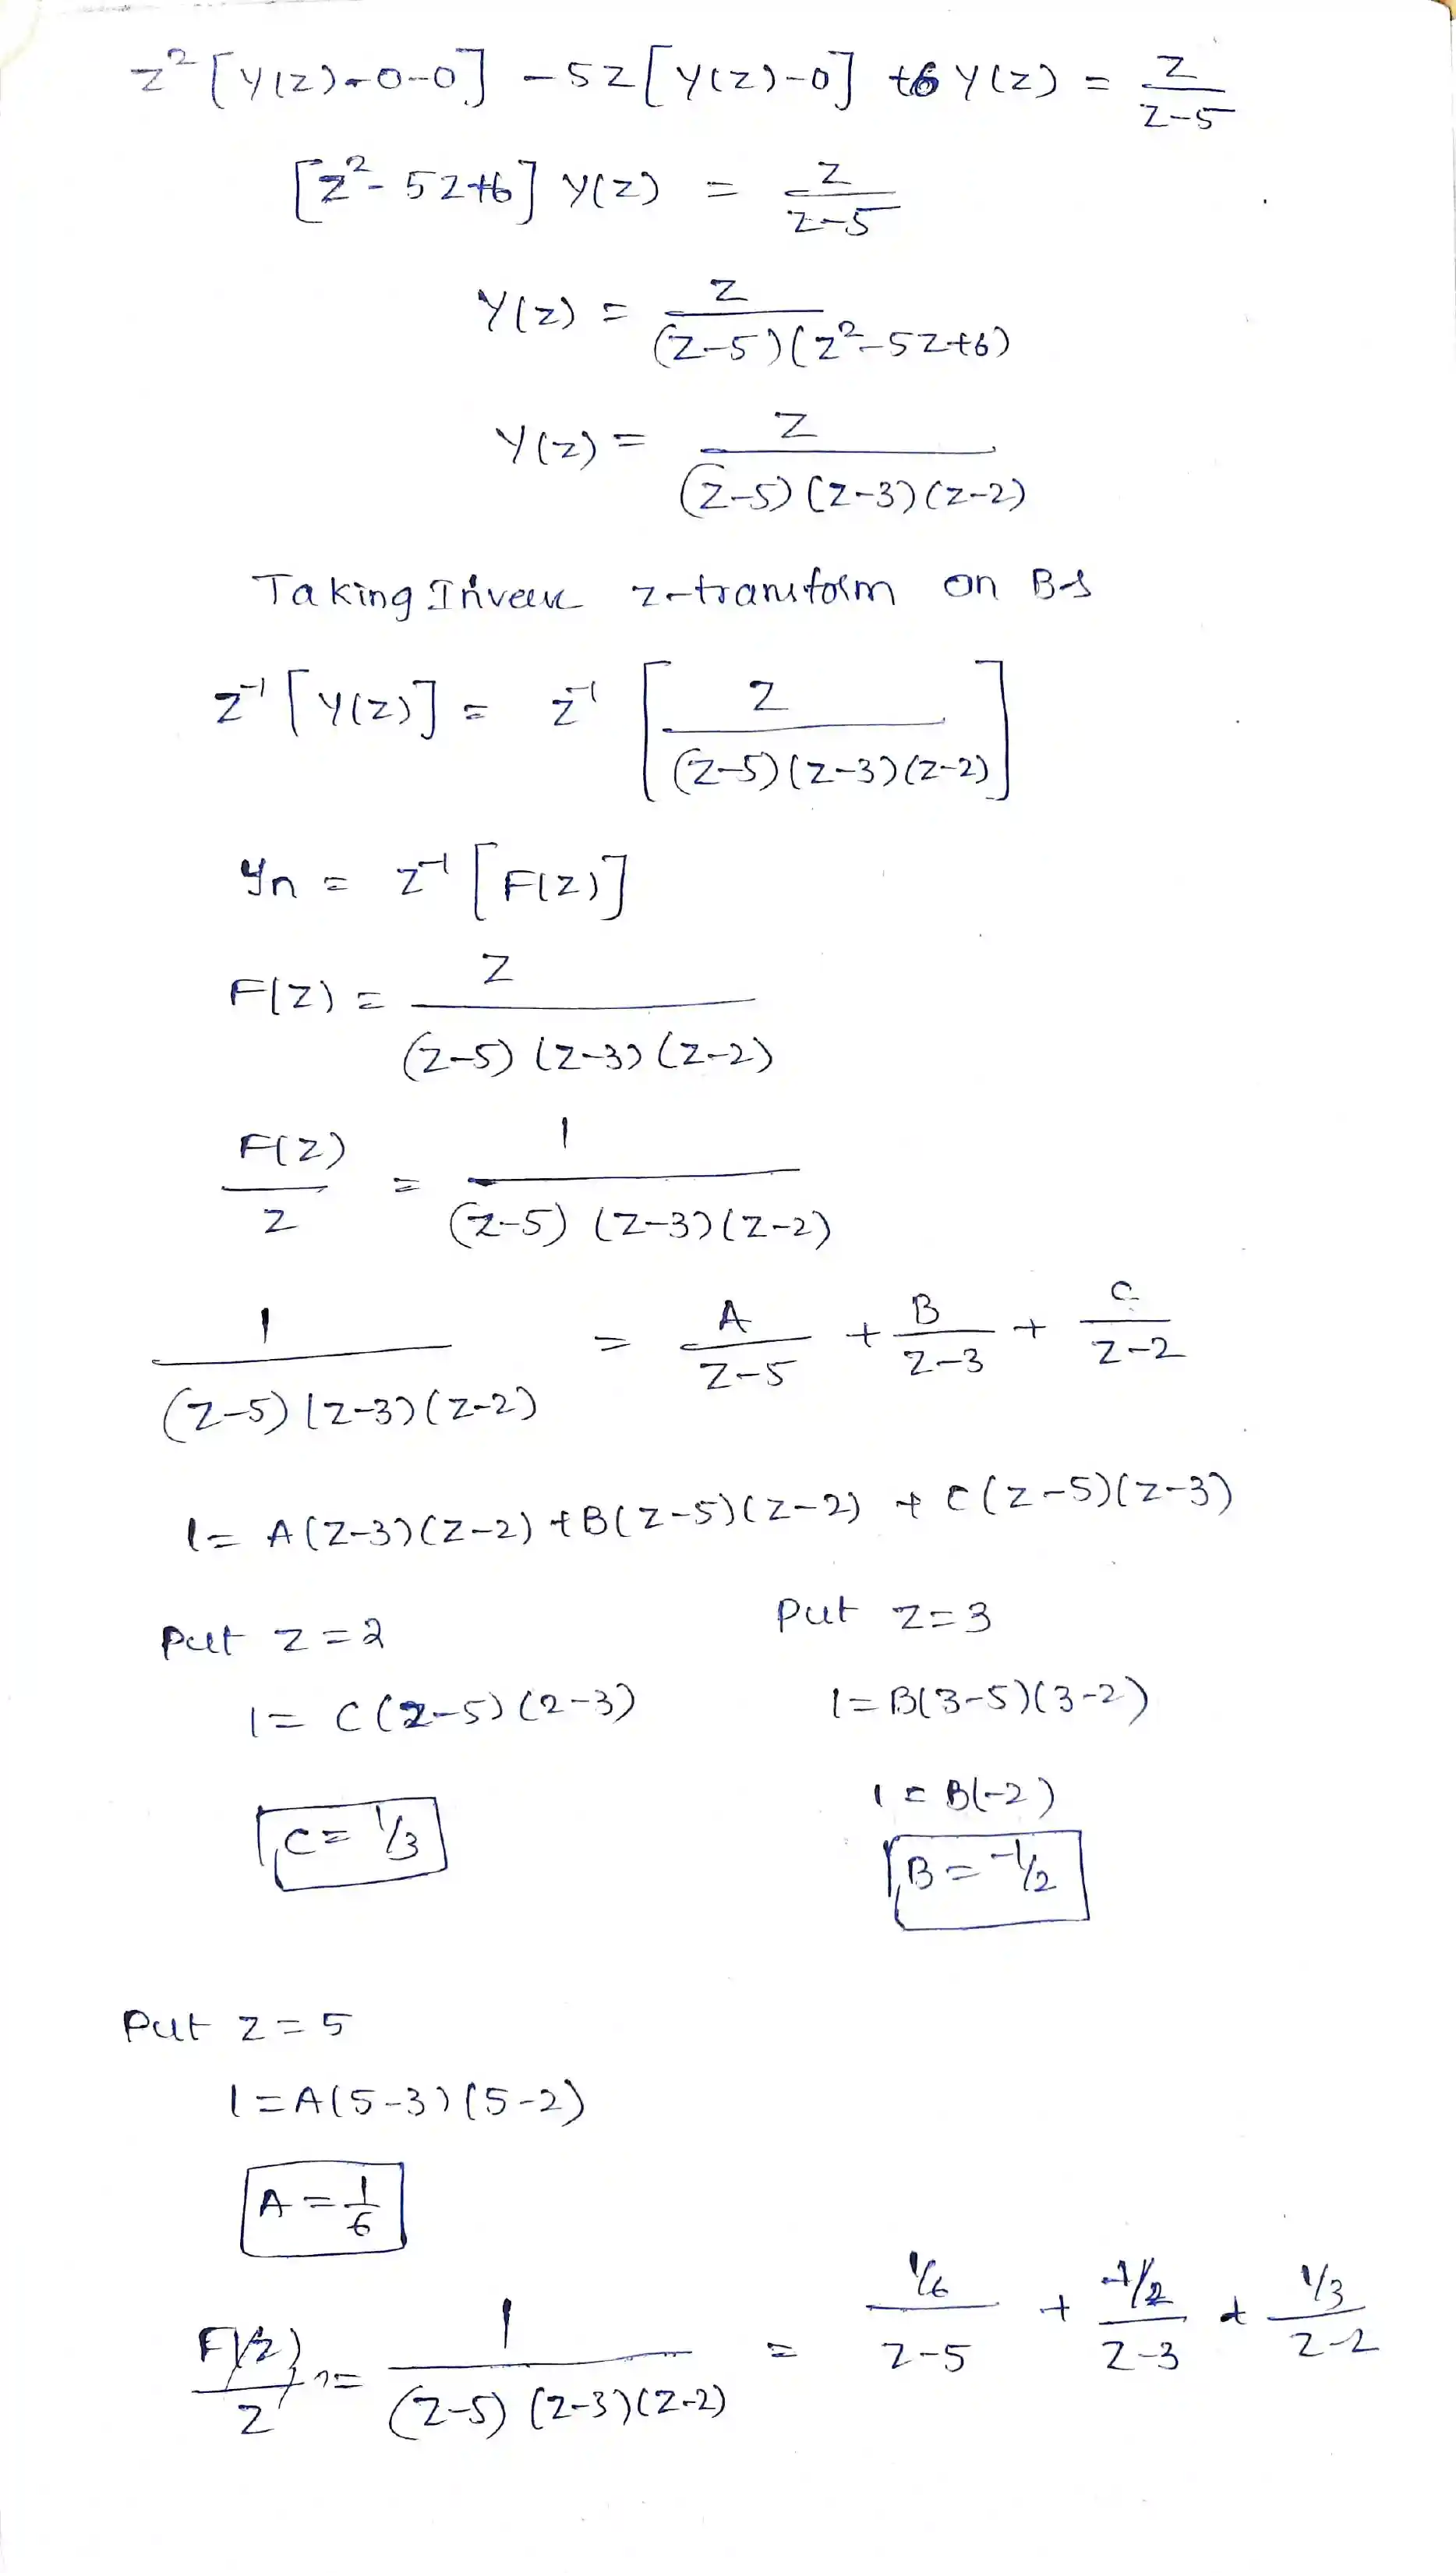 z² [Y(z)-0-0] - 5z[Y(z)-0] +6 Y(z) = z/(z-5)
[z² - 5z+6] Y(z) = z/(z-5)
Y(z) = z/((z-5)(z²-5z+6))
Y(z) = z/((z-5)(z-3)(z-2))
Taking Inverse z-transform on B-S
z⁻¹ [Y(z)] = z⁻¹ [z/((z-5)(z-3)(z-2))]
yn = z⁻¹ [F(z)]
F(z) = z/((z-5)(z-3)(z-2))
F(z)/z = 1/((z-5)(z-3)(z-2))
1/((z-5)(z-3)(z-2)) = A/(z-5) + B/(z-3) + C/(z-2)
1 = A(z-3)(z-2) + B(z-5)(z-2) + C(z-5)(z-3)
Put z=2
1 = C(2-5)(2-3)
C = 1/3
Put z=3
1 = B(3-5)(3-2)
1 = B(-2)
B = -1/2
Put z=5
1 = A(5-3)(5-2)
A = 1/6
F(z)/z = 1/((z-5)(z-3)(z-2)) = (1/6)/(z-5) + (-1/2)/(z-3) + (1/3)/(z-2)